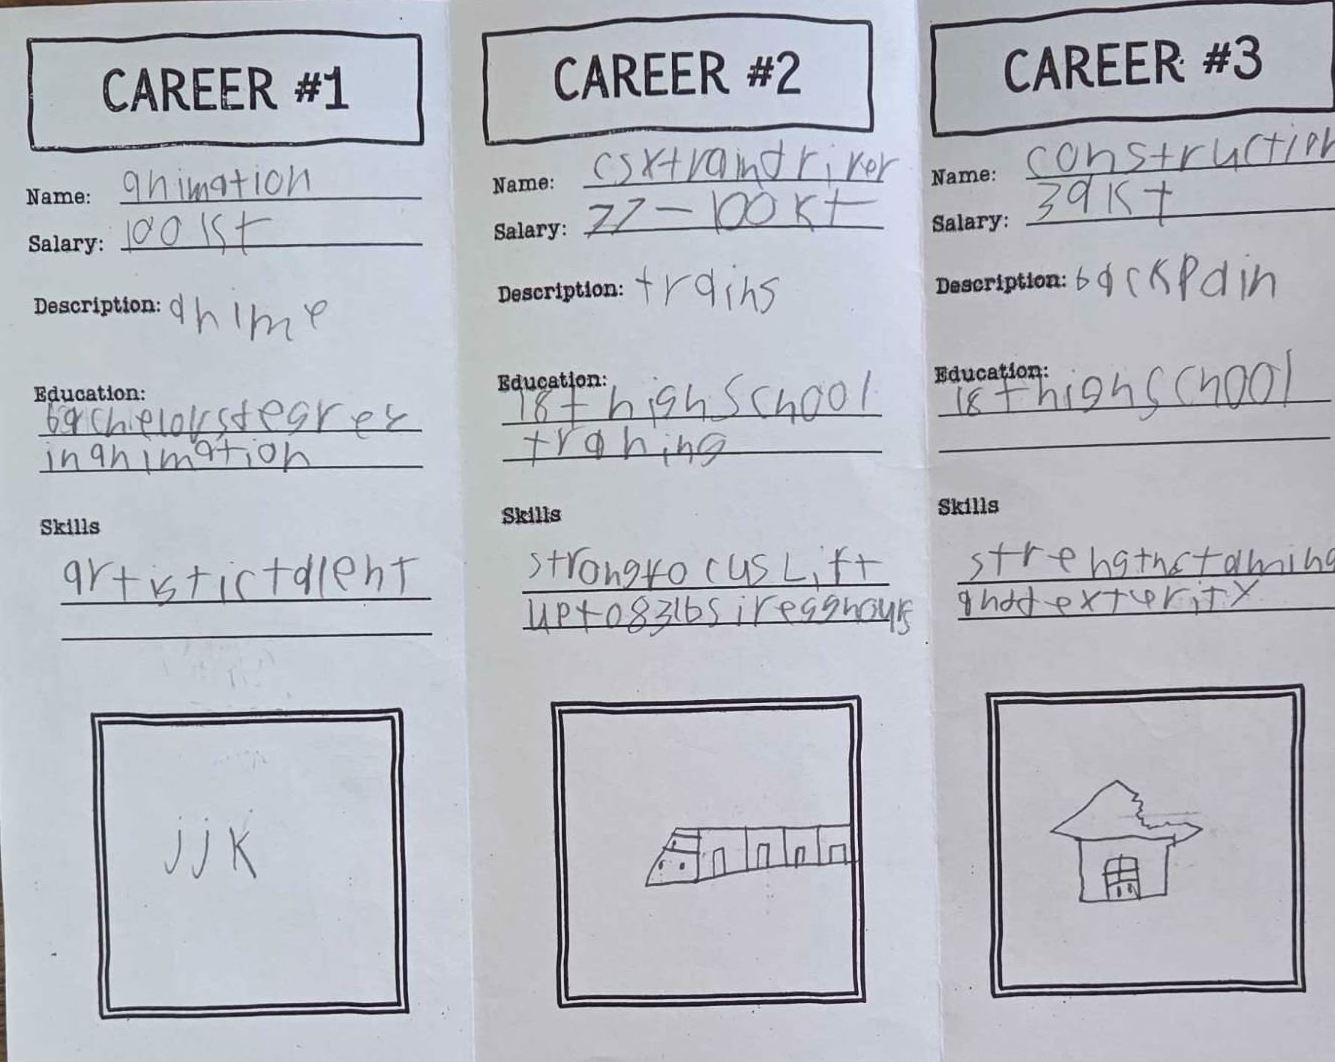 CAREER #1
Name: animation
Salary: 100K+
Description: anime
Education:
bachelorsdegree
inanimation
Skills
artistictalent
jjk
CAREER #2
Name: csxtraindriver
Salary: 77-100K+
Description: trains
Education:
18+ highschool
traning
Skills
strongfocusLift
upto83lbsiregghours
CAREER #3
Name: construction
Salary: 39K+
Description: backpain
Education:
18+highschool
Skills
strengthstamina
anddexterity